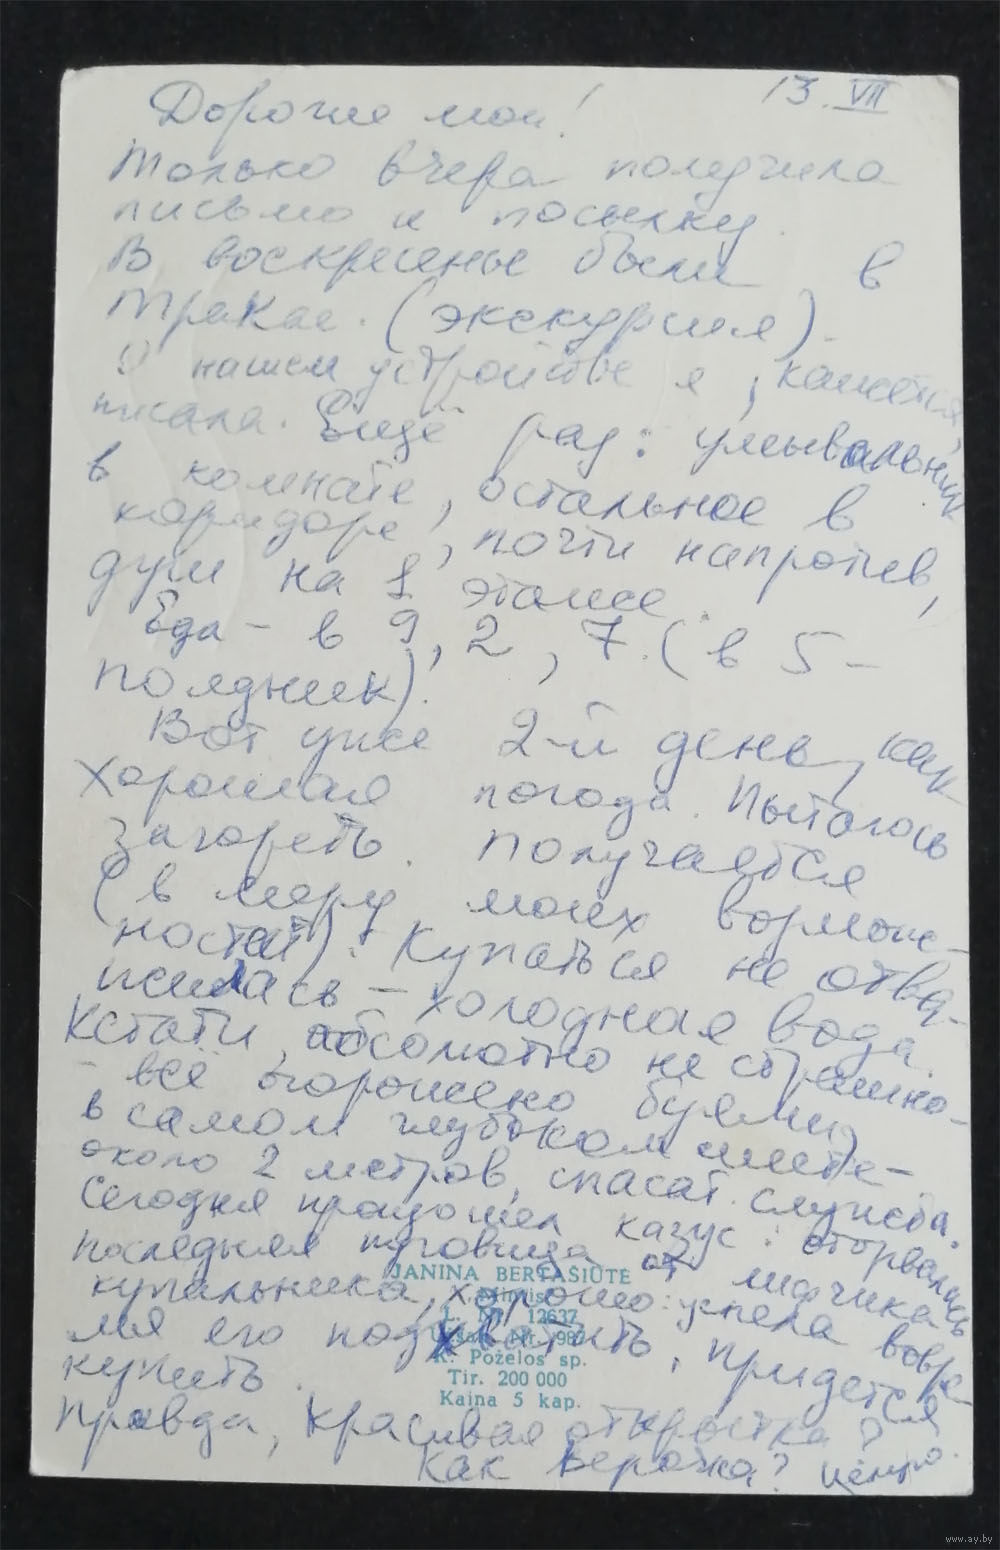 13.VII
Дорогие мои!
Только вчера получила
письмо и посылку.
В воскресенье были в
Тракае. (экскурсия).
О нашем устройстве я, кажется,
писала. Ещё раз: умывальник
в комнате, остальное в
коридоре, почти напротив,
душ на 1 этаже.
Еда – в 9, 2, 7. (в 5 –
полдник).
Вот уже 2-й день, как
хорошая погода. Пытаюсь
загореть. Получается
(в меру моих возмож-
ностей). Купаться не отва-
жилась – холодная вода.
Кстати, абсолютно не страшно –
– всё огорожено буями,
в самом глубоком месте –
около 2 метров, спасат. служба.
Сегодня произошел казус: оторвалась
последняя пуговица от лифчика
купальника, хорошо: успела вовре-
мя его подхватить, придется
купить.
Правда, красивая открытка?
Как Верочка?
JANINA BERTAŠIŪTE
12637
K. Poželos sp.
Tir. 200 000
Kaina 5 kap.
www.ay.by